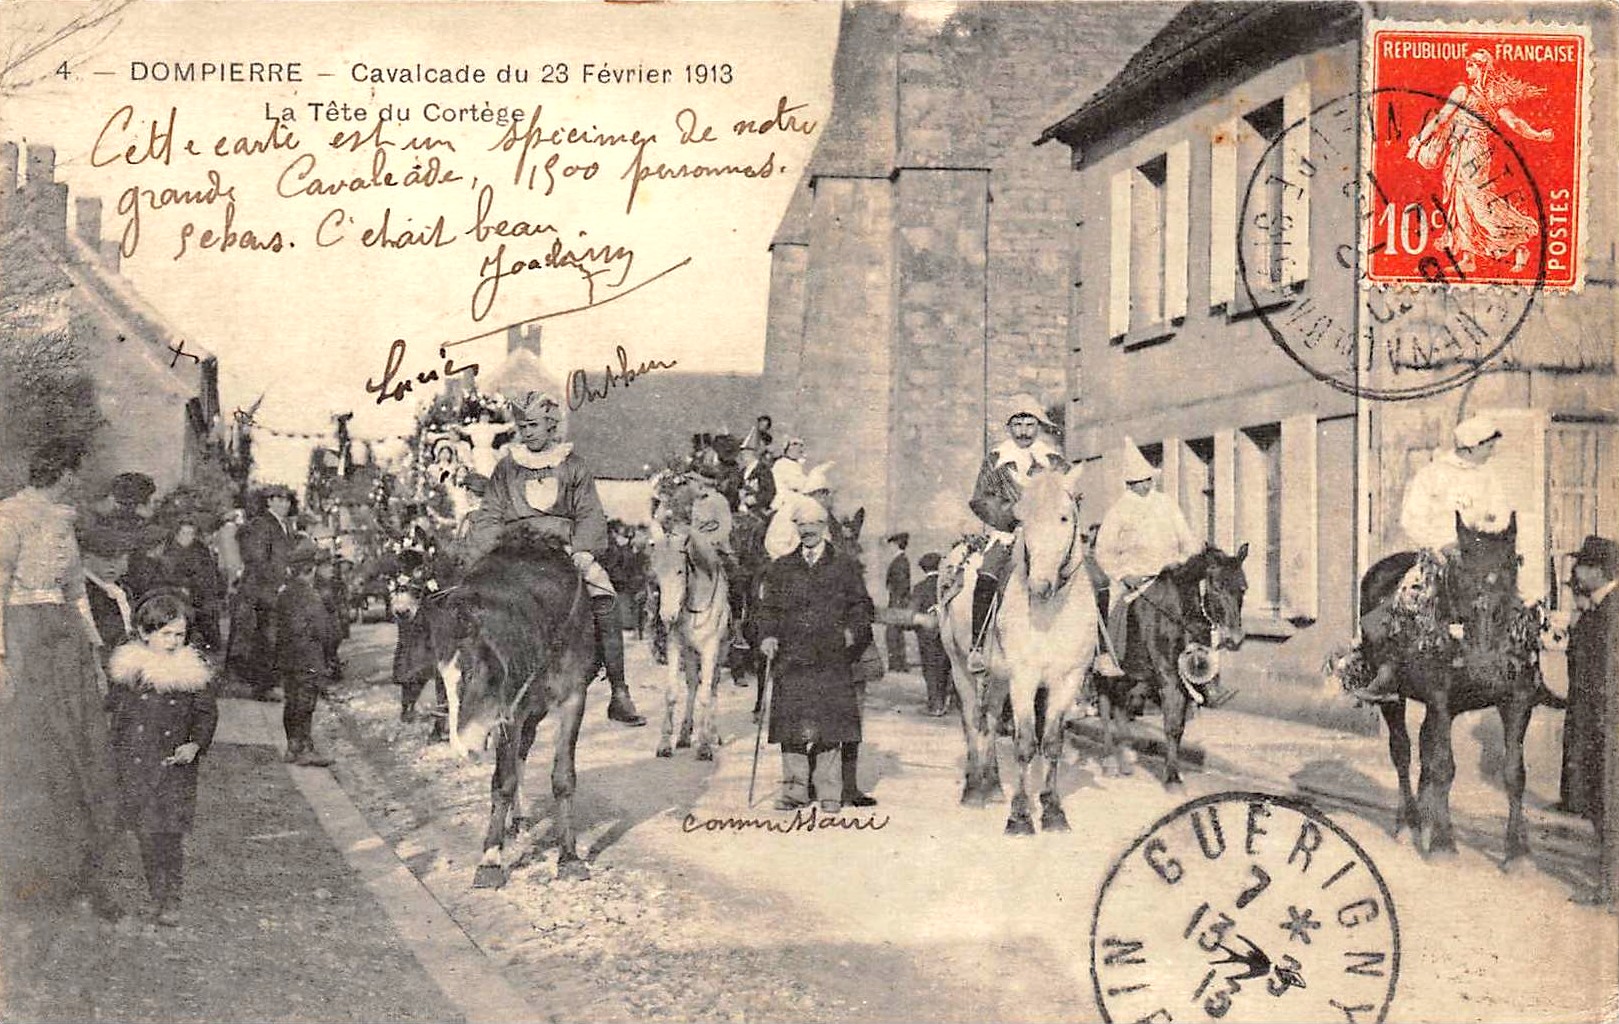 4. — DOMPIERRE — Cavalcade du 23 Février 1913
La Tête du Cortège
Cette carte est un spécimen de notre
grande Cavalcade, 1500 personnes.
dehors. C'était beau.
Lucien
Arthur
commissaire
REPUBLIQUE FRANÇAISE
10c
POSTES
GUERIGNY
7 *
13
13